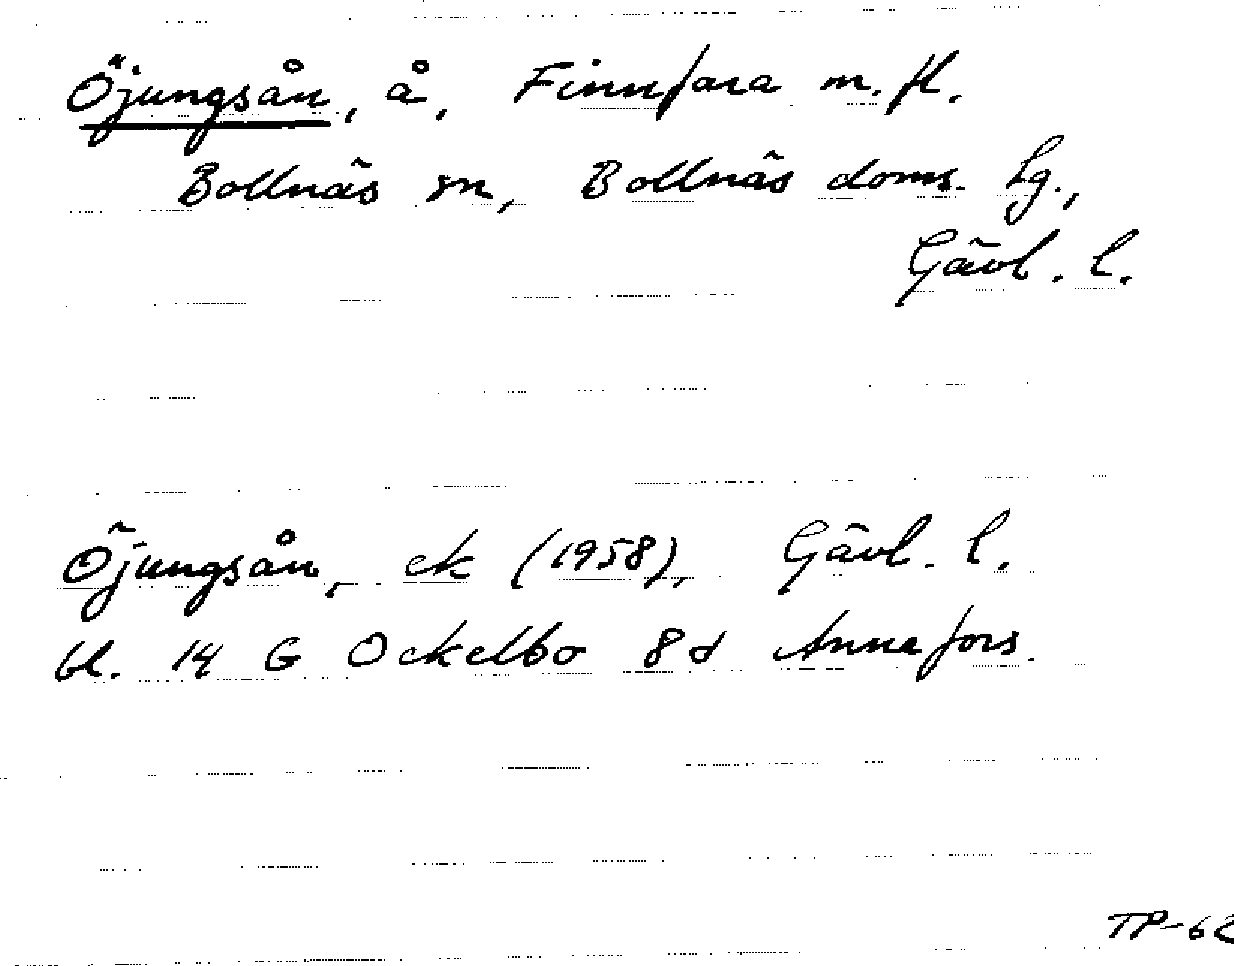 Öjungsån, å, Finnfara m. fl.
Bollnäs sn, Bollnäs doms. hg.,
Gävl. l.
Öjungsån, ek (1958), Gävl. l.
bl. 14 G Ockelbo 8d Annefors.
TP-62